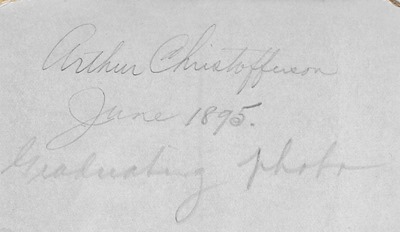 Arthur Christofferson
June 1895.
Graduating photo